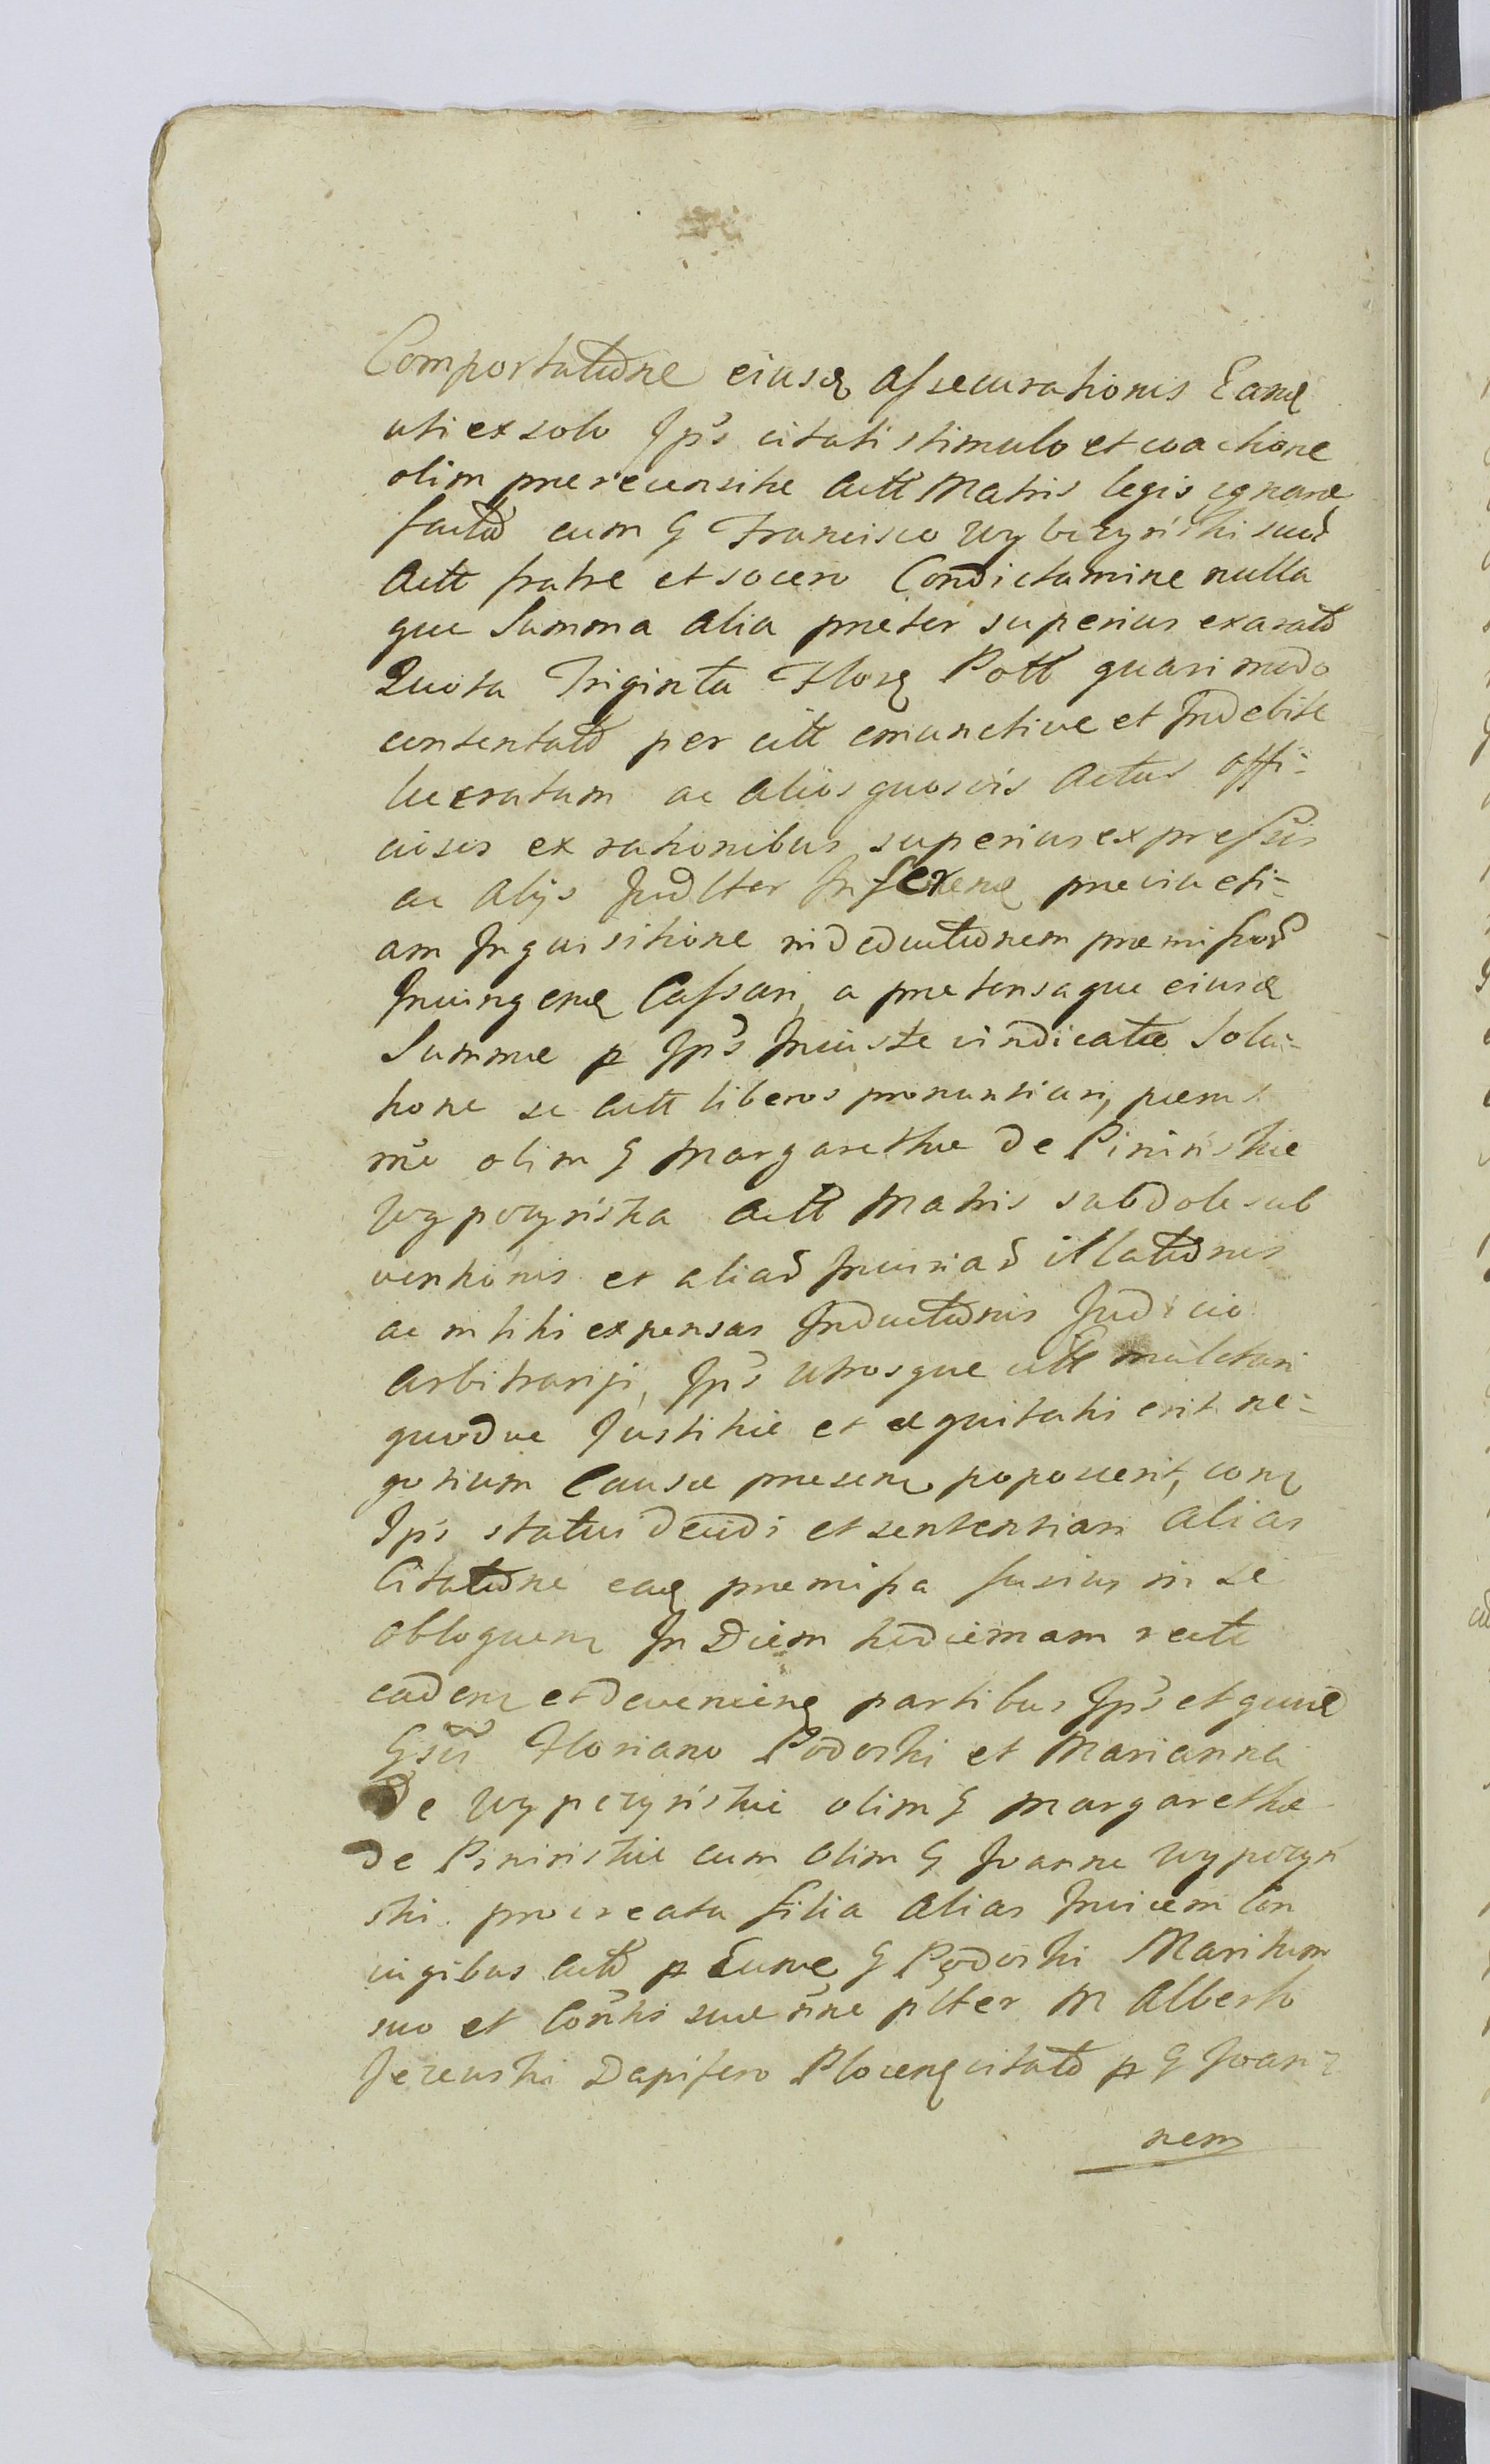 Comportatione eiusd assecurationis Eand
uti ex solo Jps citati stimulo et coactione
olim prerecensitae Actt Matris legis ignarae
factã cum G Francisco Wybczynski suoȓ
Actt fratre et socero Condictamine nulla
que Summa alia praeter superius exaratã
Quota Triginta Flor Poll quasi modo
contentatã per citt emunctive et Indebite
lucratum ac alios quosvis Actus offi-
ciosos ex rationibus superius expressis
ac alijs Judlter Inferend praevia eti-
am Inquisitione in deductionem praemissorȓ
Invingend Cassari, a praetensaque eiusd
Summae p Jps Iniuste vindicatae Solu-
tione se Actt liberos pronuntiari, paenis
olim G Margarethae de Pininskie
Wypczynska Actt Matris subdole sub
ventionis et aliaȓ Iniuriaȓ illationis
ac in litis expensas Inductionis Judicio
arbitrarijs, Jps utrosque citt mulctari
quodve Justitiae et aequitati erit ne-
gotium Causae praesens poposcerit, con
Jps statui decidi et sententiari alias
Citatione ead praemissa fusius in se
obloquen In Diem hodiernam recte
caden et devenien partibus Jps et quid
Gsis Floriano Podoski et Marianna
De Wypczynskie olim G Margarethae
de Pininskie cum olim G Joanne Wypczyn
ski procreata filia alias Invicem Con
iugibus Actt p Eund G Podoski Maritum
suo et Contis suae nne plter M Alberto
Jezewski Dapifero Plocen citatã p G Joan-
nem